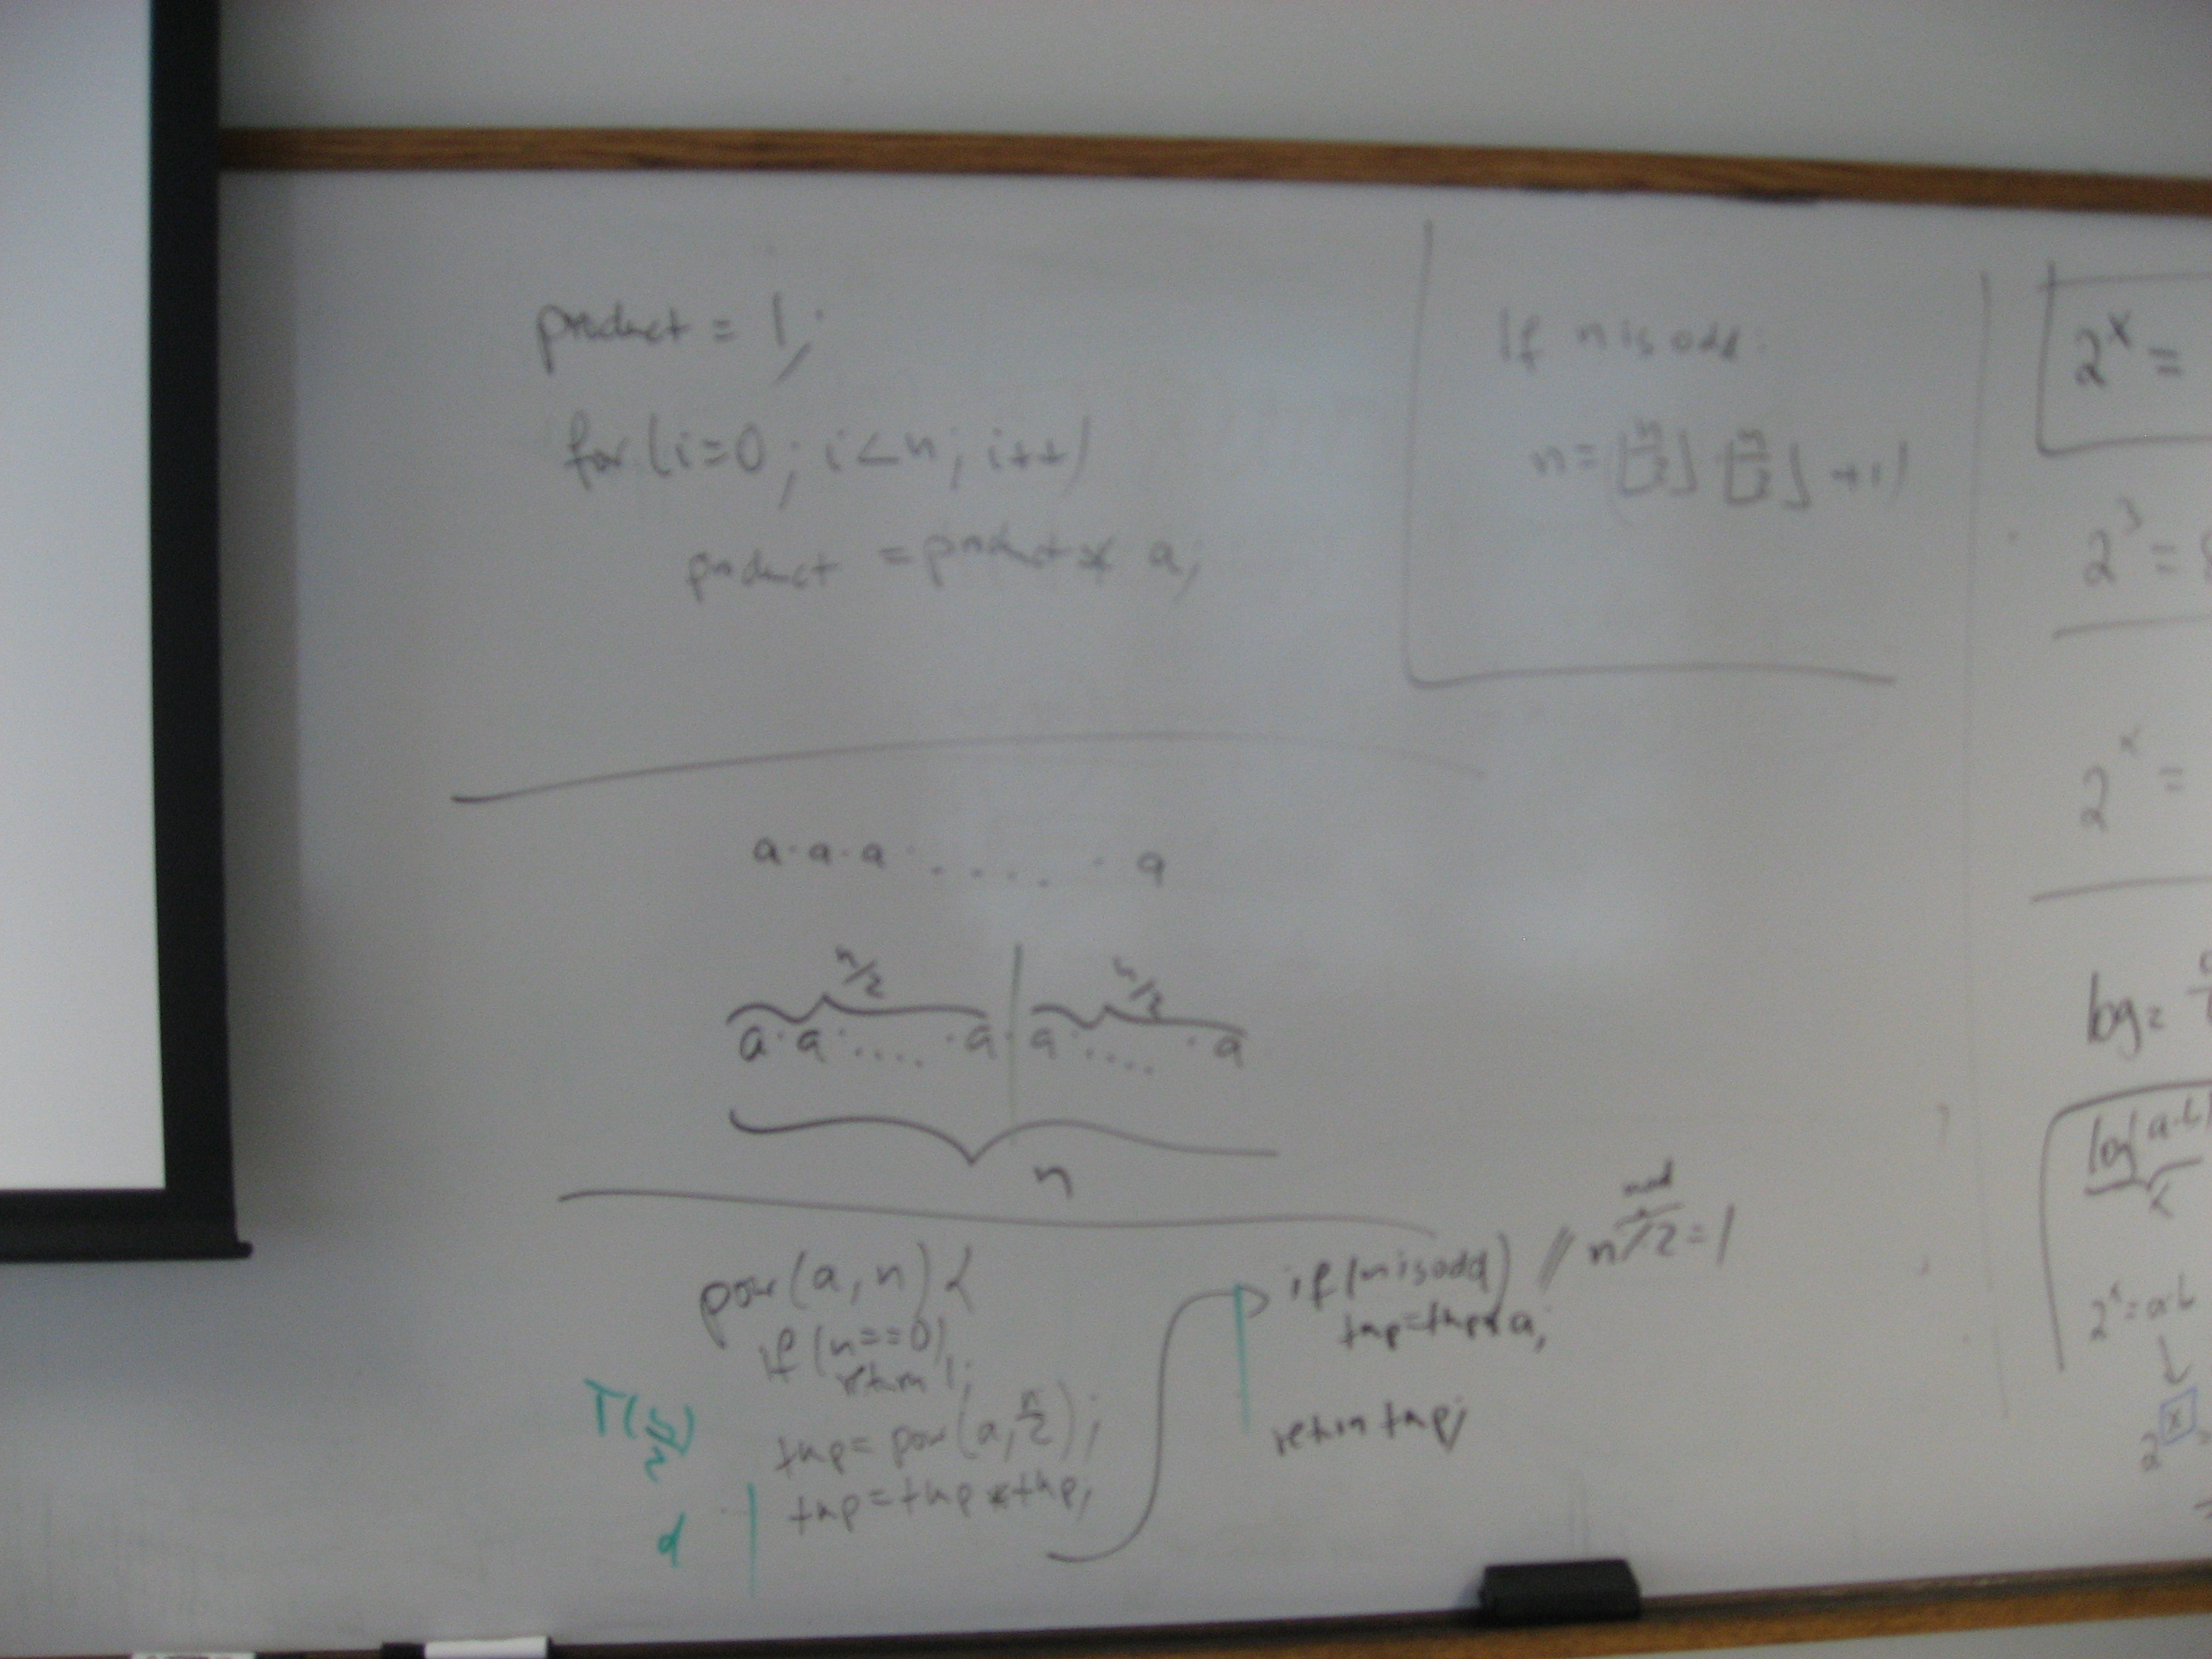 product = 1;
for (i=0; i<n; i++)
product = product * a;
If n is odd:
n = ⌊n/2⌋ ⌊n/2⌋ + 1
a·a·a· ..... · a
n/2 n/2
a·a·....·a·a·....·a
n
pow(a, n) {
if (n==0)
return 1;
T(n/2)
tmp = pow(a, n/2);
d
tmp = tmp * tmp;
if (n is odd) // n % 2 = 1
mod
tmp = tmp * a;
return tmp;
2^x =
2^3 = 8
2^x =
log2
log(a·b)
x
2^x = a·b
2^x =